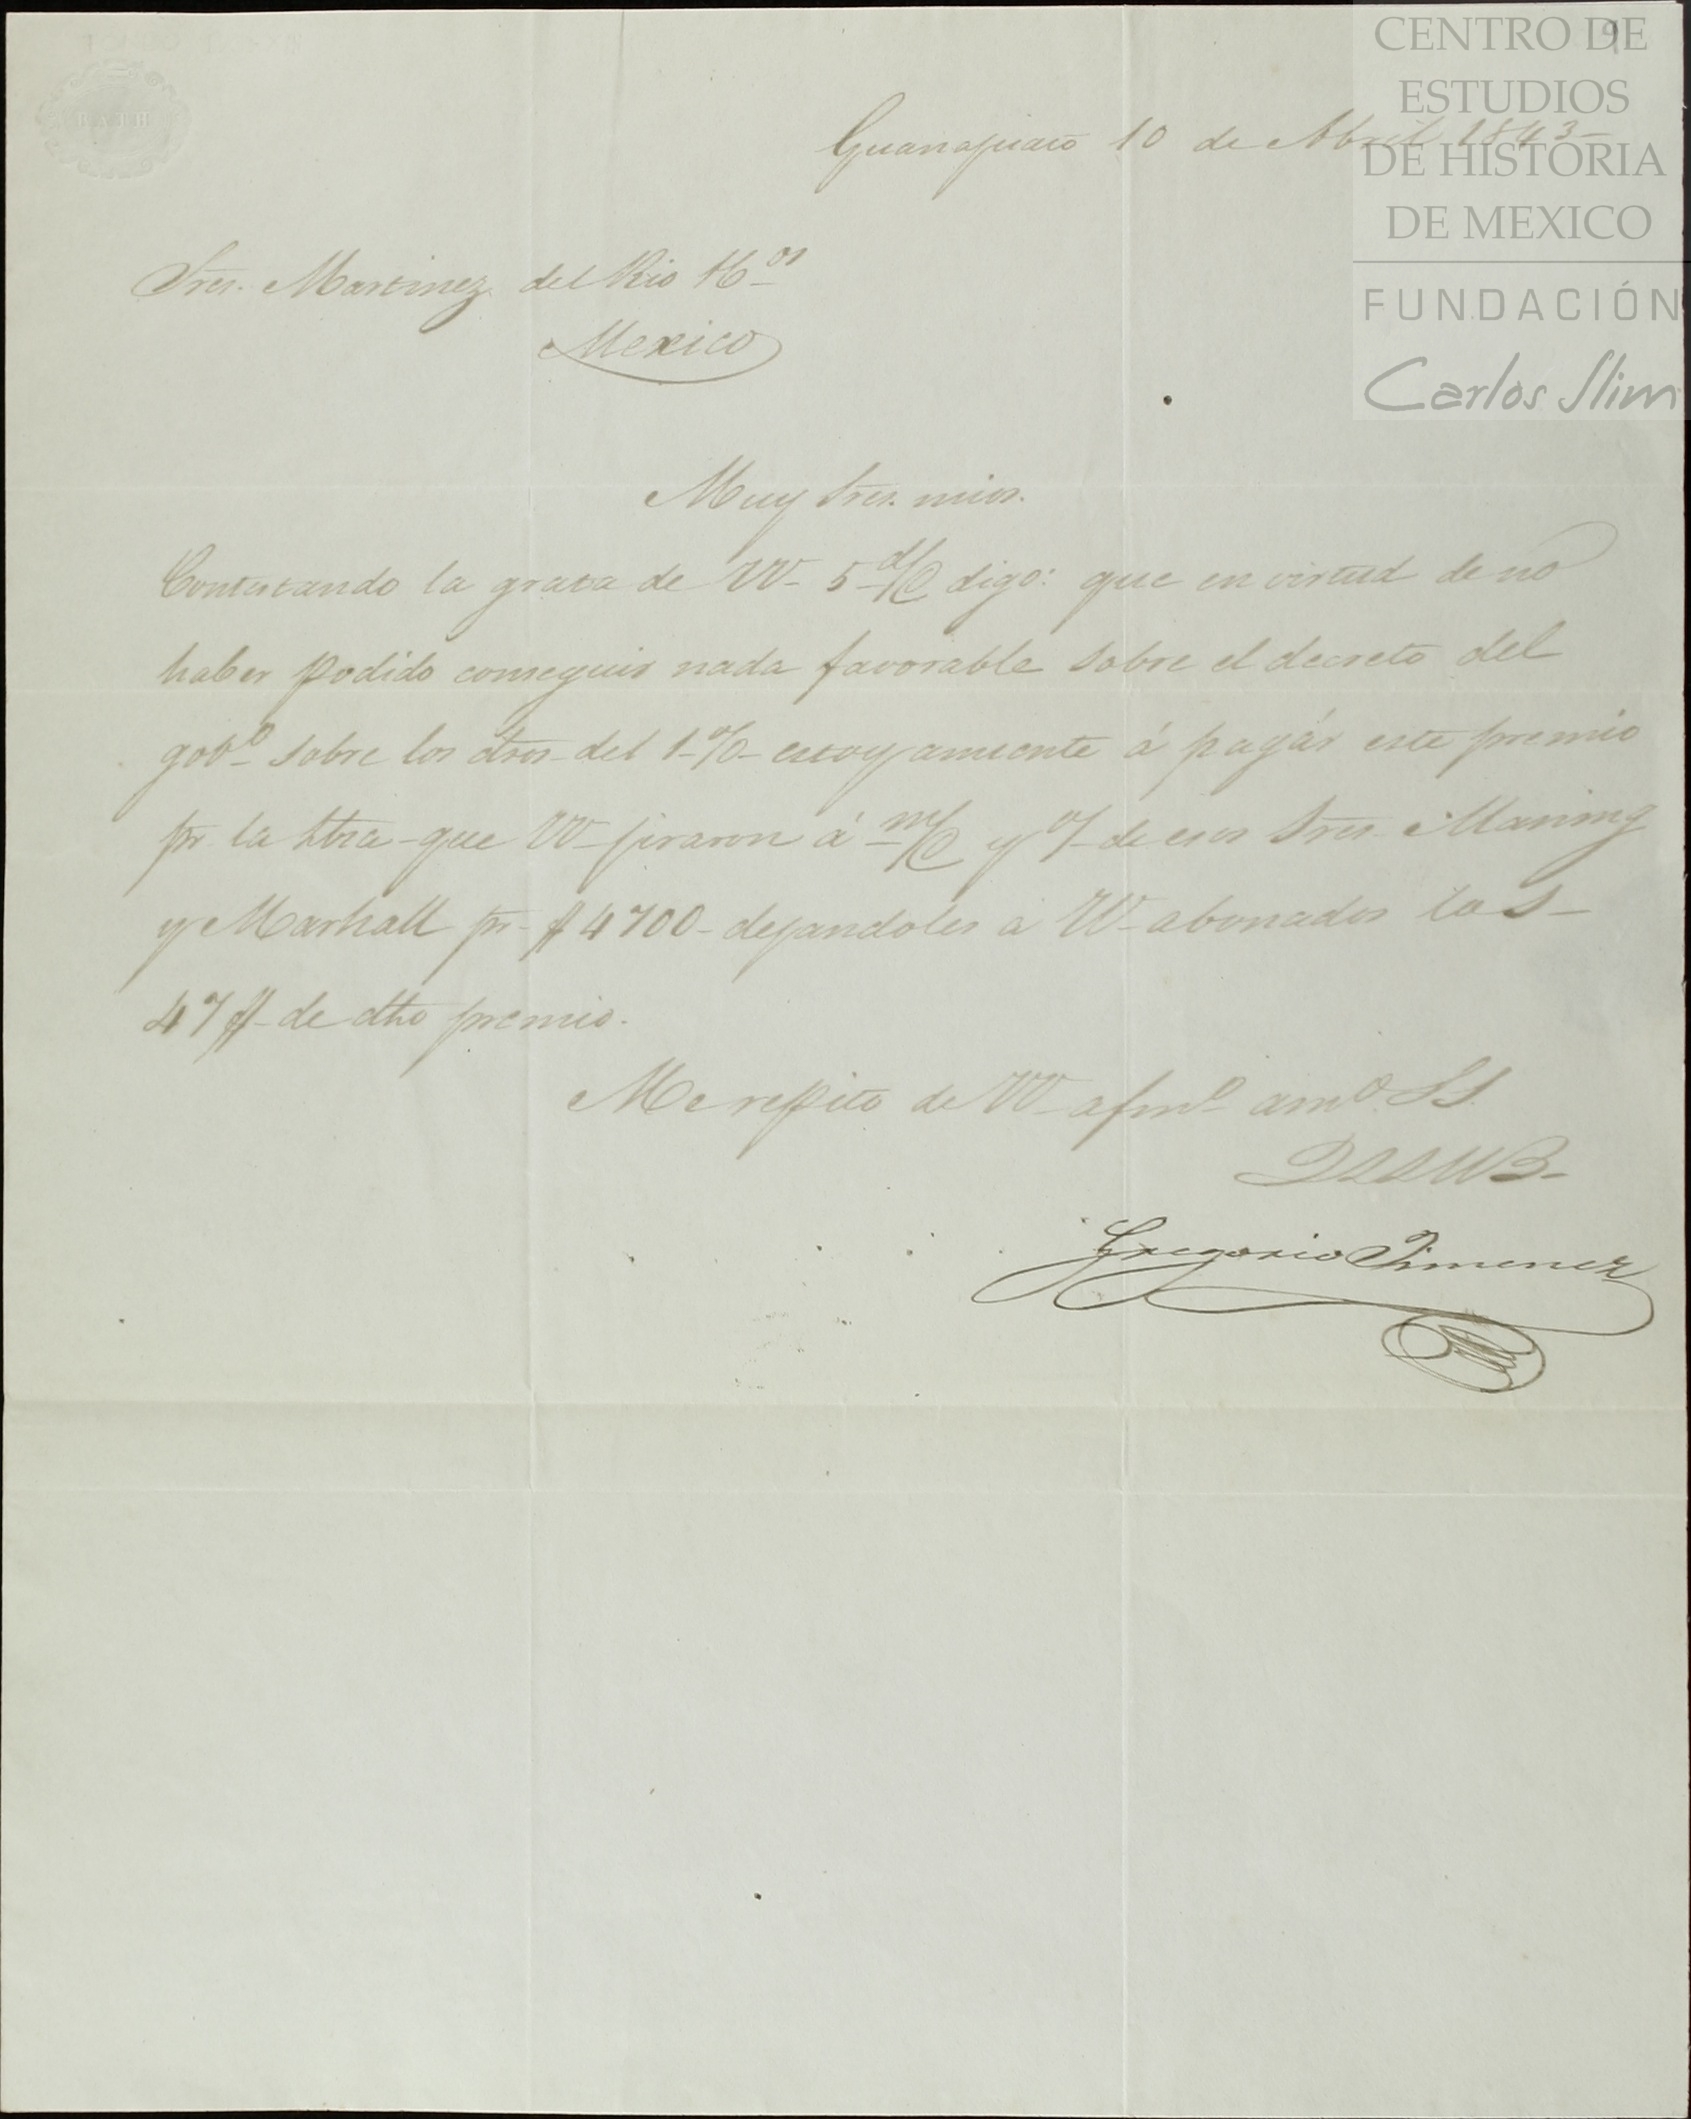 CENTRO DE
ESTUDIOS
DE HISTORIA
DE MEXICO
FUNDACIÓN
Carlos Slim
BATH
Guanajuato 10 de Abril 1843
Sres. Martinez del Rio H-os
Mexico
Muy Sres. mios.
Contestando la grata de VV- 5 d/C digo: que en virtud de no
haber podido conseguir nada favorable sobre el decreto del
gob-o sobre los dros- del 1-%- estoy anuente á pagár este premio
pr. la Ltra- que VV- jiraron á m/C y o/- de esos Sres- Maning
y Marhall pr- $ 4700- dejandoles á VV- abonados los-
47 $- de dho premio.
Me repito de VV- afmo- amo. SS.
QSSMB-
Gregorio Jimenez